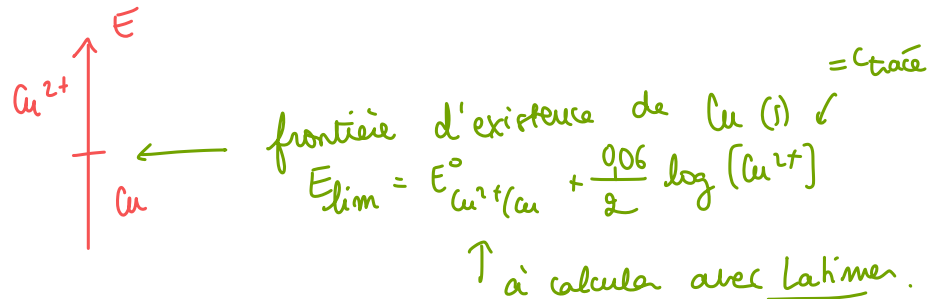 E
Cu²⁺
Cu
= Ctracé
frontière d'existence de Cu (s)
Elim = E°Cu²⁺/Cu + 0,06/2 log [Cu²⁺]
à calculer avec Latimer.